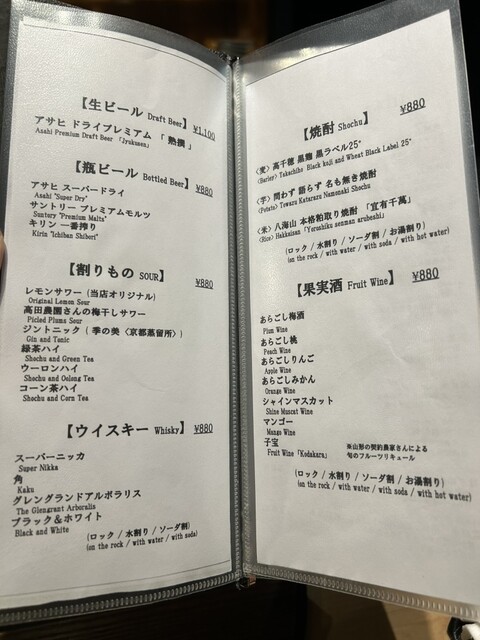 【生ビール Draft Beer】 ¥1,100
アサヒ ドライプレミアム 「 熟撰 」
Asahi Premium Draft Beer 「Jrukusen」
【瓶ビール Bottled Beer】 ¥880
アサヒ スーパードライ
Asahi "Super Dry"
サントリー プレミアムモルツ
Suntory "Premium Malts"
キリン 一番搾り
Kirin "Ichiban Shibori"
【割りもの SOUR】 ¥880
レモンサワー (当店オリジナル)
Original Lemon Sour
高田農園さんの梅干しサワー
Picled Plums Sour
ジントニック ( 季の美 〈京都蒸留所〉)
Gin and Tonic
緑茶ハイ
Shochu and Green Tea
ウーロンハイ
Shochu and Oolong Tea
コーン茶ハイ
Shochu and Corn Tea
【ウイスキー Whisky】 ¥880
スーパーニッカ
Super Nikka
角
Kaku
グレングランドアルボラリス
The Glengrant Arboralis
ブラック＆ホワイト
Black and White
(ロック / 水割り / ソーダ割)
(on the rock / with water / with soda)
【焼酎 Shochu】 ¥880
〈麦〉高千穂 黒麹 黒ラベル25°
〈Barley〉Takachiho Black koji and Wheat Black Label 25°
〈芋〉問わず 語らず 名も無き焼酎
〈Potato〉Towazu Katarazu Namonaki Shochu
〈米〉八海山 本格粕取り焼酎 「宜有千萬」
〈Rice〉Hakkaisan 「Yoroshiku senman arubeshi」
(ロック / 水割り / ソーダ割 / お湯割り)
(on the rock / with water / with soda / with hot water)
【果実酒 Fruit Wine】 ¥880
あらごし梅酒
Plum Wine
あらごし桃
Peach Wine
あらごしりんご
Apple Wine
あらごしみかん
Orange Wine
シャインマスカット
Shine Muscat Wine
マンゴー
Mango Wine
子宝
Fruit Wine 「Kodakara」
※山形の契約農家さんによる
旬のフルーツリキュール
(ロック / 水割り / ソーダ割 / お湯割り)
(on the rock / with water / with soda / with hot water)